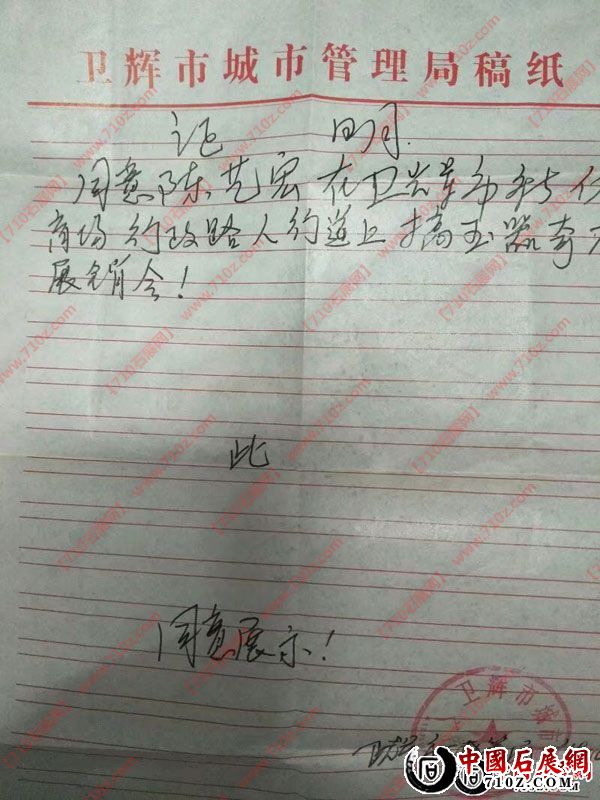 卫辉市城市管理局稿纸
证 明
同意陈艺宏在卫辉市
商场行政路人行道上搞玉器奇
展销会！
此
同意展示！
卫辉市城市
中國石展網
7102.COM
【710石展网】www.710z.com